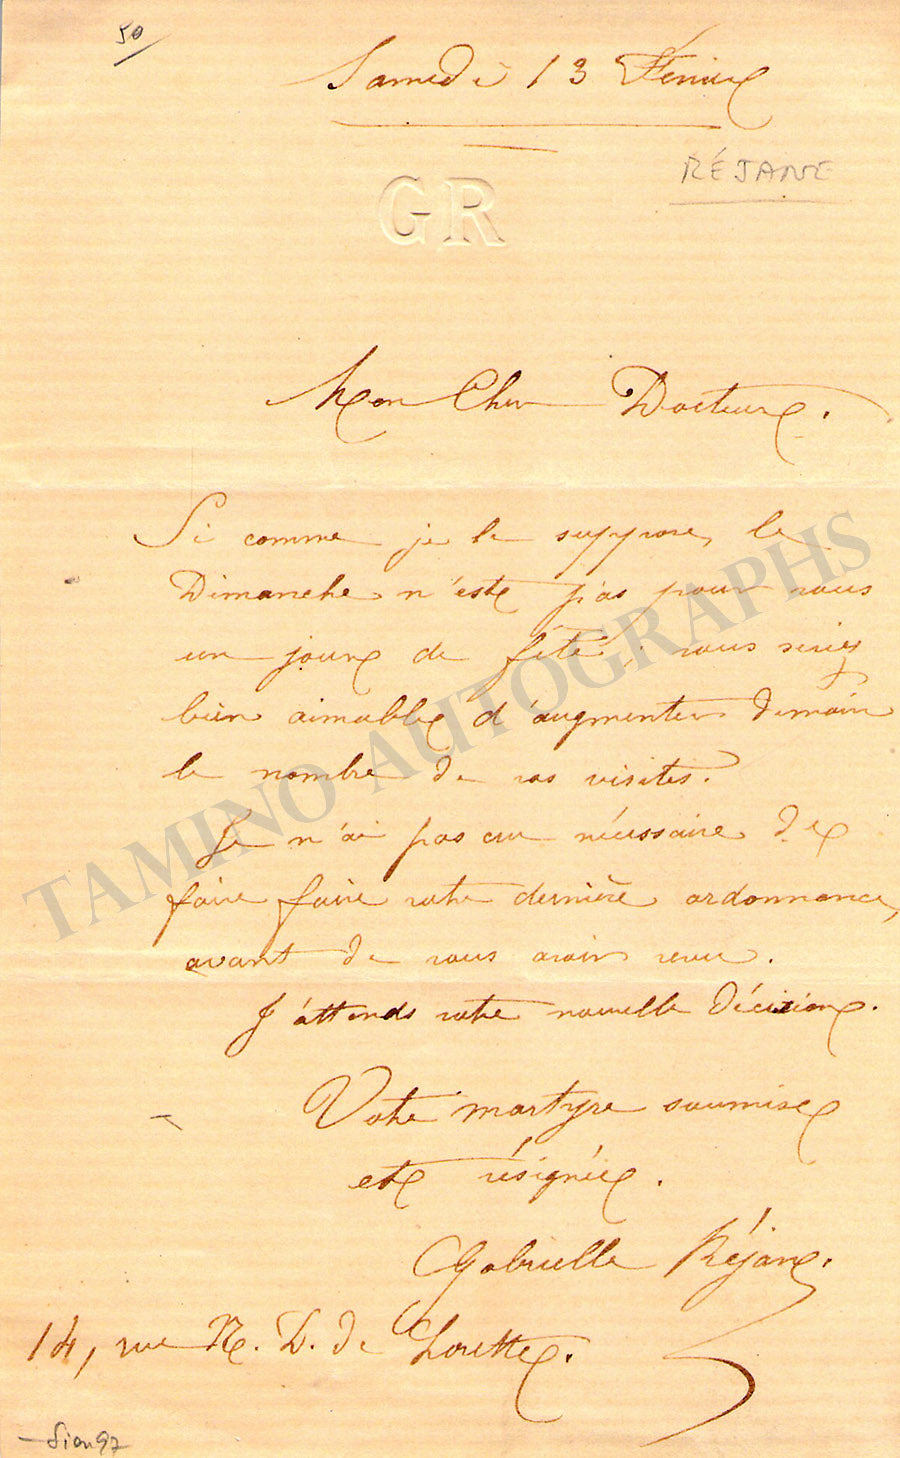 50
Samedi 13 Février
RÉJANE
GR
Mon Cher Docteur.
Si comme je le suppose, le
Dimanche n'est pas pour vous
un jour de fête, vous seriez
bien aimable d'augmenter demain
le nombre de vos visites.
Je n'ai pas cru nécessaire de
faire faire votre dernière ordonnance,
avant de vous avoir revu.
J'attends votre nouvelle décision.
Votre martyre soumise
et résignée.
Gabrielle Réjane.
14, rue N. D. de Lorette.
TAMINO AUTOGRAPHS